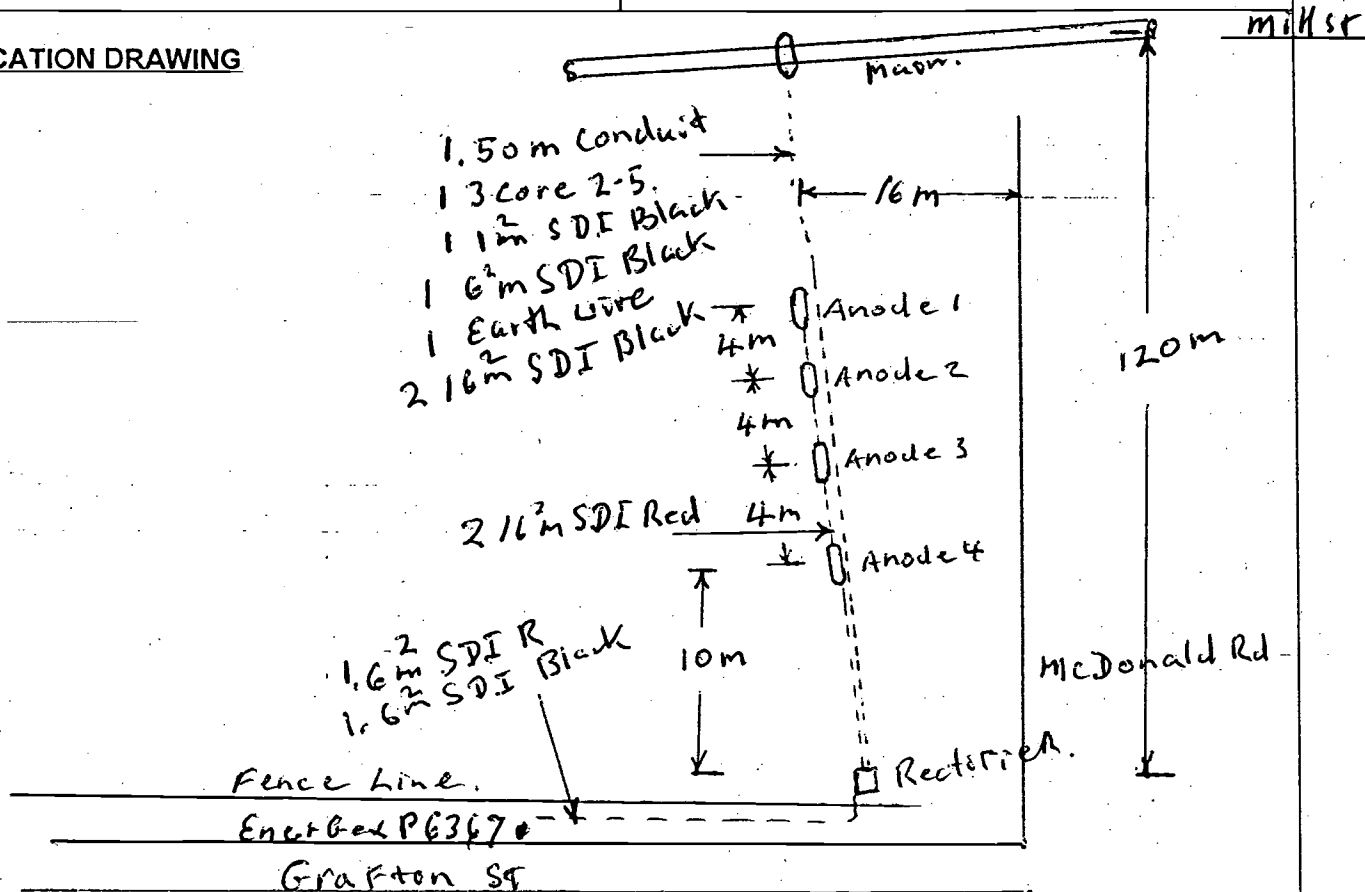 CATION DRAWING
Mill St
Main.
1. 50 m Conduit
1 3 core 2.5.
1 1m² SDI Black
1 6m² SDI Black
1 Earth wire
2 16m² SDI Black
16 m
Anode 1
4 m
Anode 2
4 m
Anode 3
120 m
2 16m² SDI Red
4 m
Anode 4
1. 6m² SDI R
1. 6m² SDI Black
10 m
McDonald Rd
Rectifier.
Fence Line.
Energex P6367
Grafton St